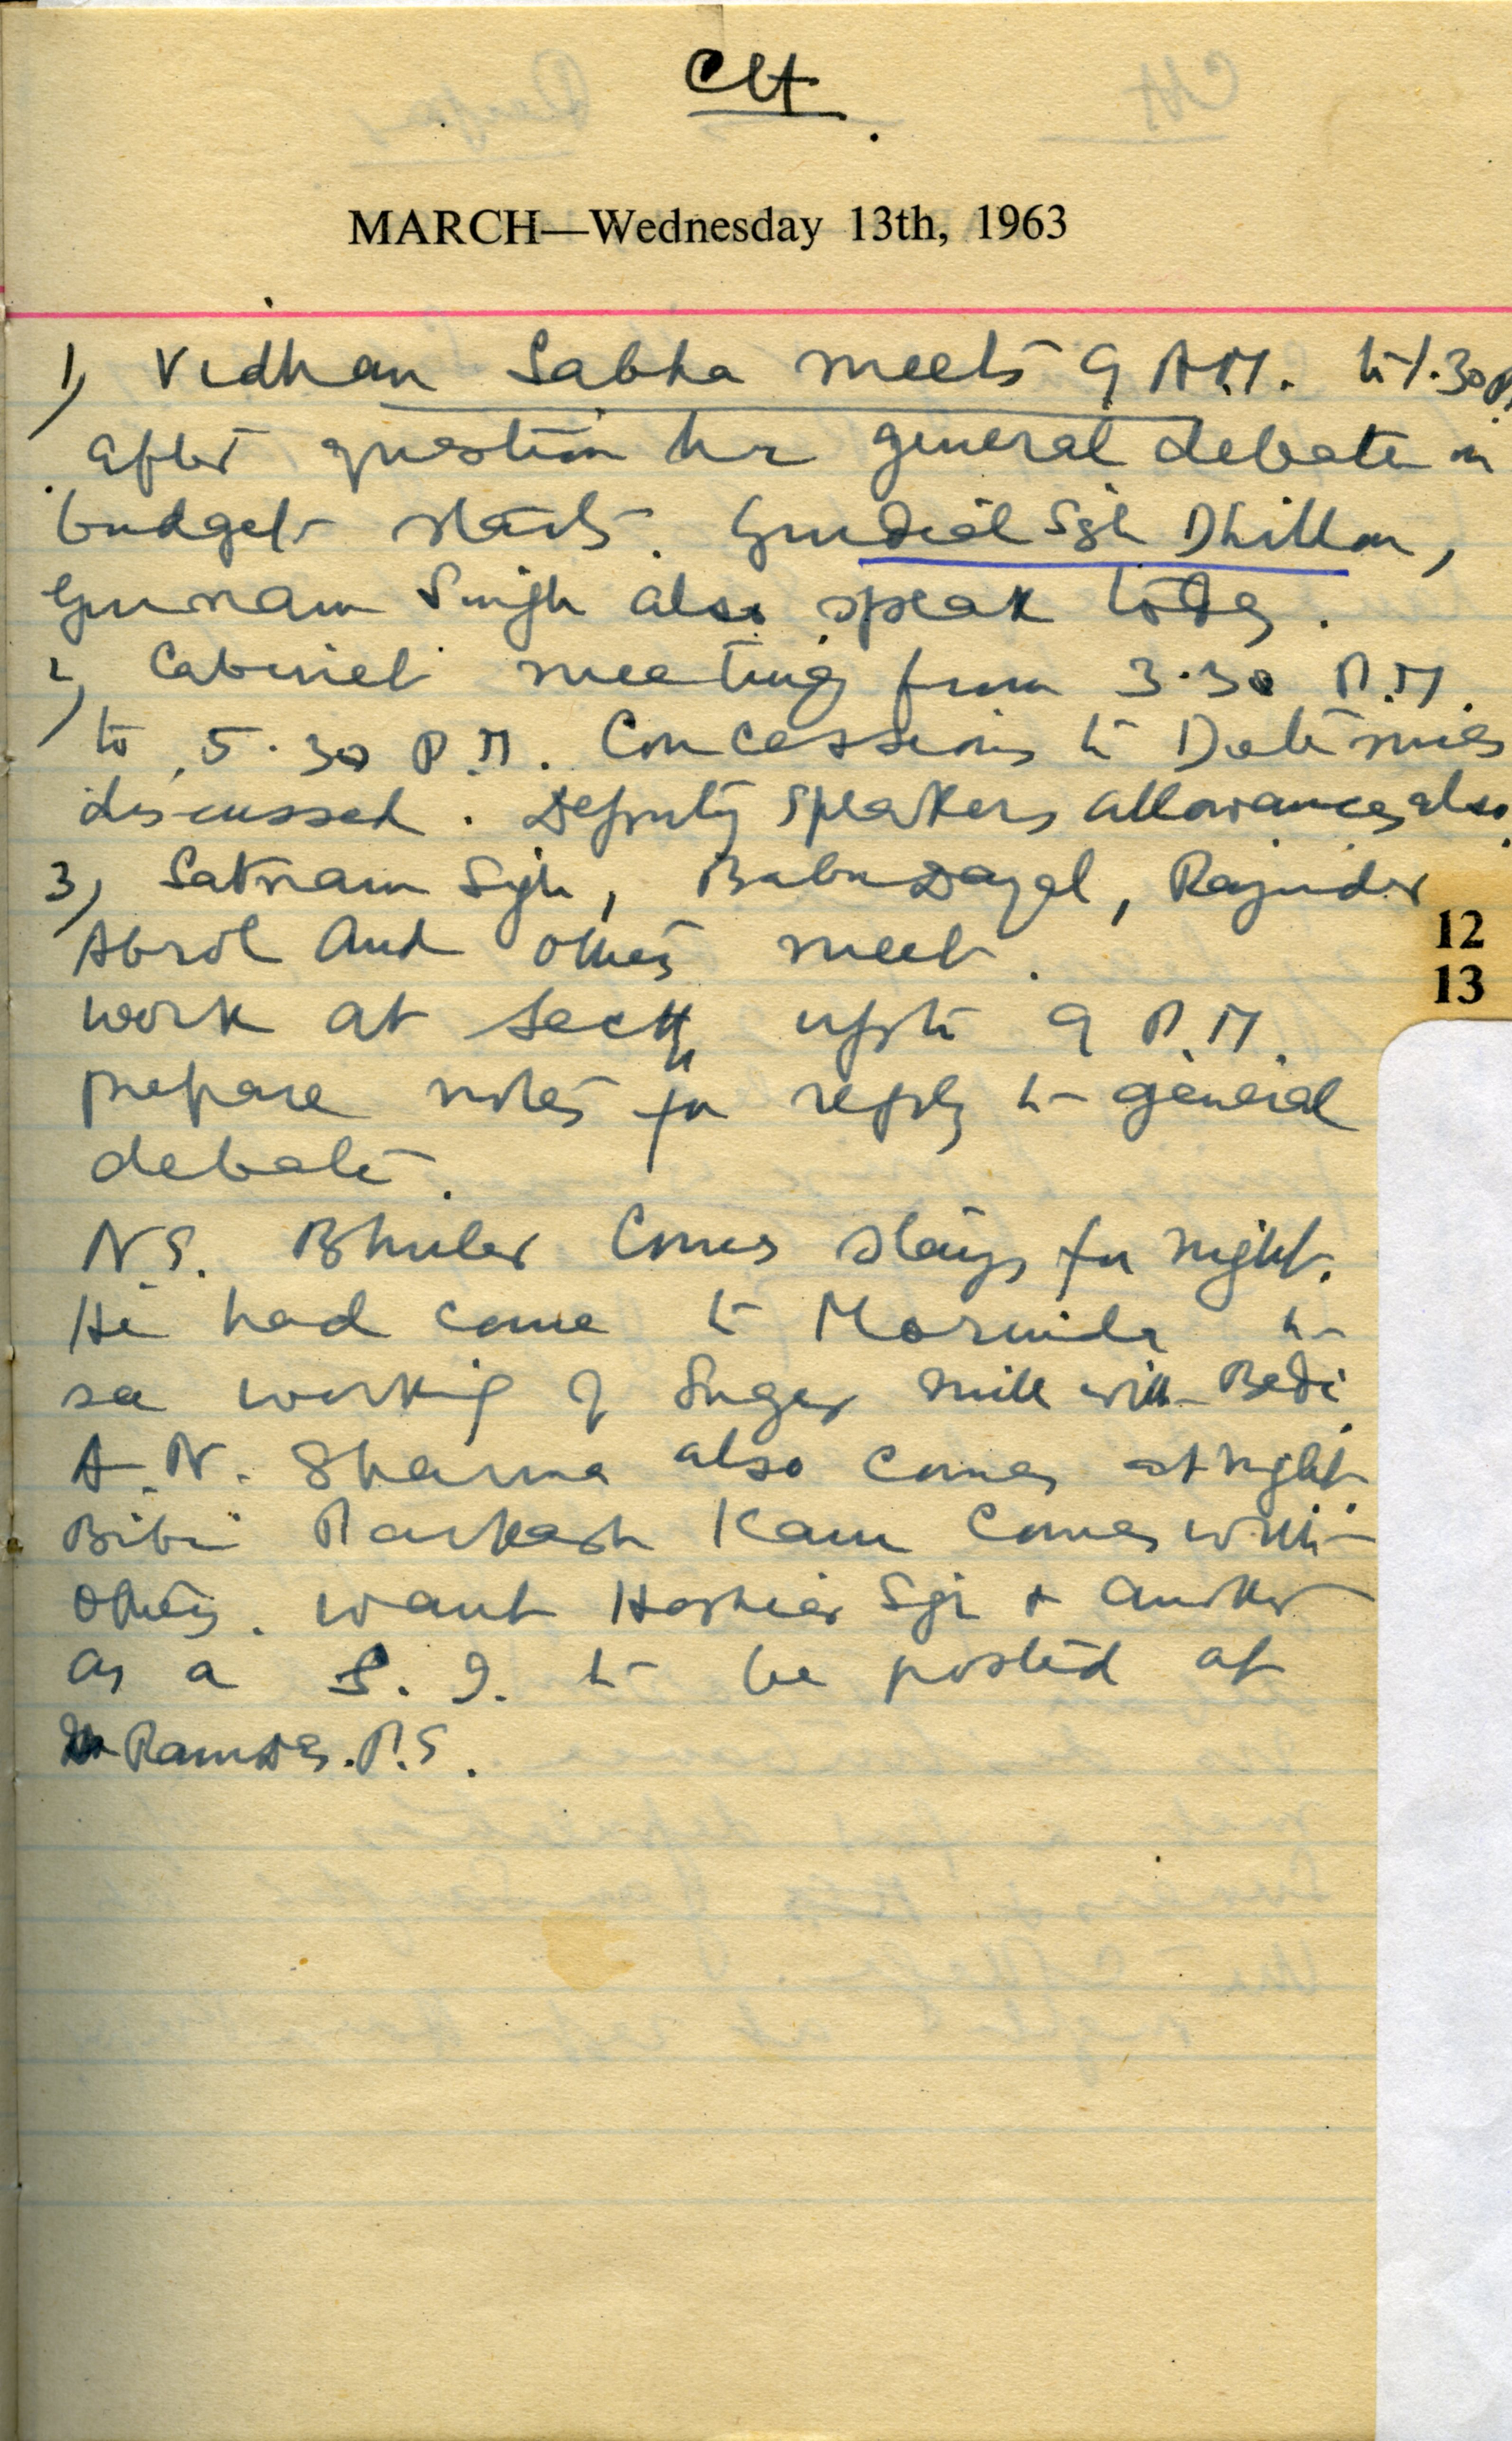 CH
MARCH—Wednesday 13th, 1963
1) Vidhan Sabha meets 9 A.M. to 1.30 P.
after question hr general debate on
budget starts. Gurdial Sgh Dhillon,
Gurnam Singh also speak today.
2) Cabinet meeting from 3.30 P.M.
to 5.30 P.M. Concessions to
discussed. Deputy Speakers allowances also.
3) Satnam Sgh, Babu Dayal, Rajinder
Abrol and others meet.
12
13
work at Sectt upto 9 P.M.
prepare notes for reply to general
debate.
N.S. Bhuler Comes stays for night.
He had come to Morinda to
see working of Sugar mill with Bedi.
A.N. Sharma also comes at night.
Bibi Parkash Kaur Comes with
others. want Hoshiar Sgh & another
as a S.I. to be posted at
Ramdas. P.S.